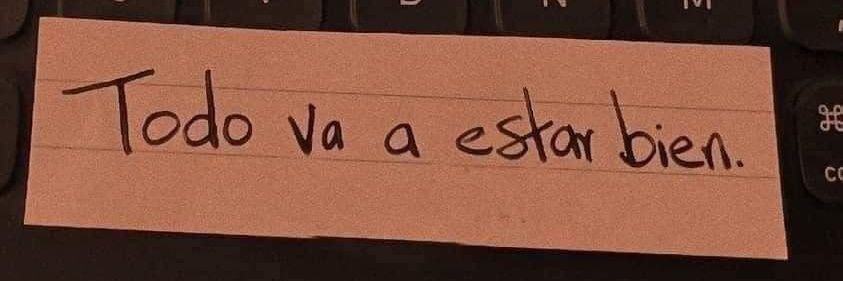 Todo va a estar bien.